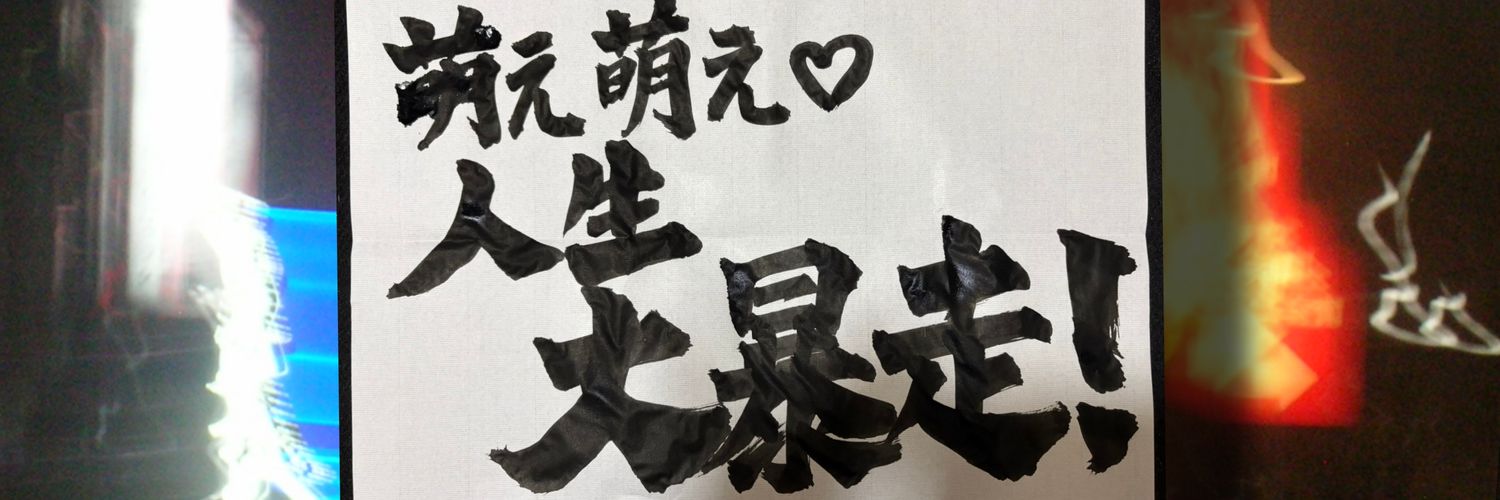 萌え萌え♡
人生
大暴走!